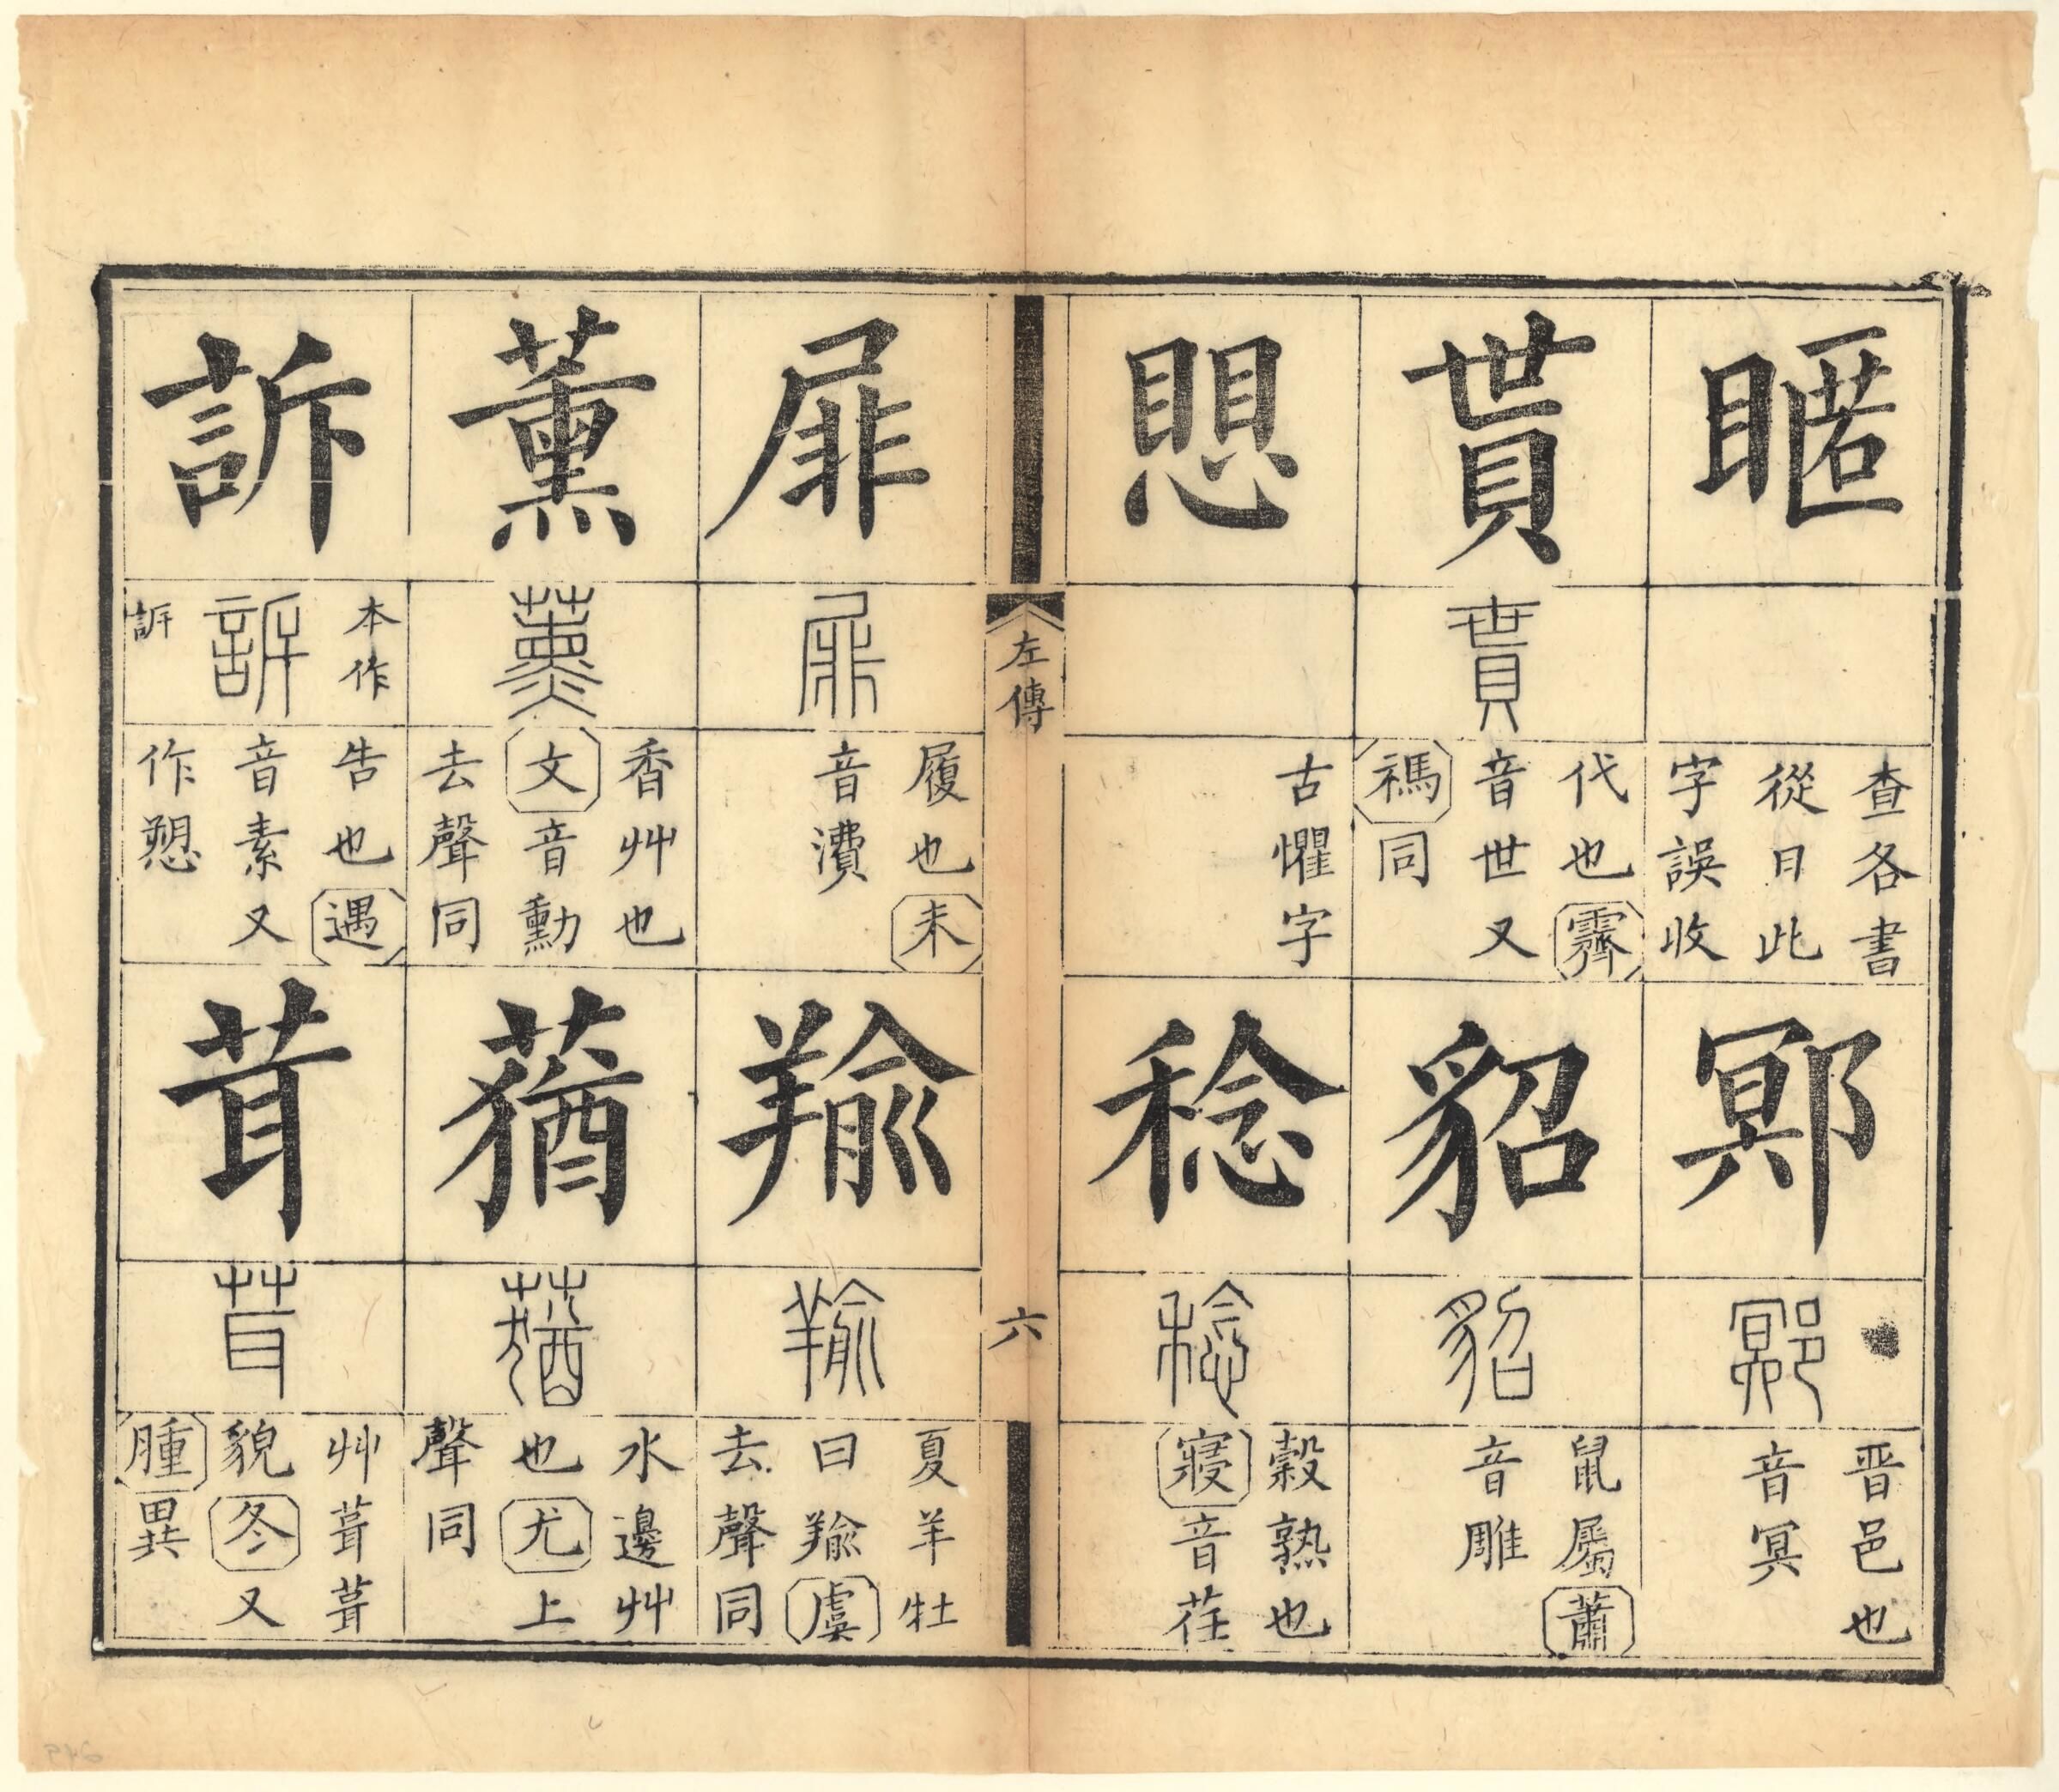 暱
查各書
從日此
字誤收
鄍
鄍
晋邑也
音冥
貰
貰
代也霽
音世又
禡同
貂
貂
鼠屬蕭
音雕
愳
古懼字
稔
稔
穀熟也
寢音荏
左傳
六
屝
屝
履也未
音瀵
羭
羭
夏羊牡
曰羭虞
去聲同
薰
薰
香艸也
文音勳
去聲同
蕕
蕕
水邊艸
也尤上
聲同
訴
本作
訴
告也遇
音素又
作愬
茸
茸
艸葺葺
貌冬又
腫異